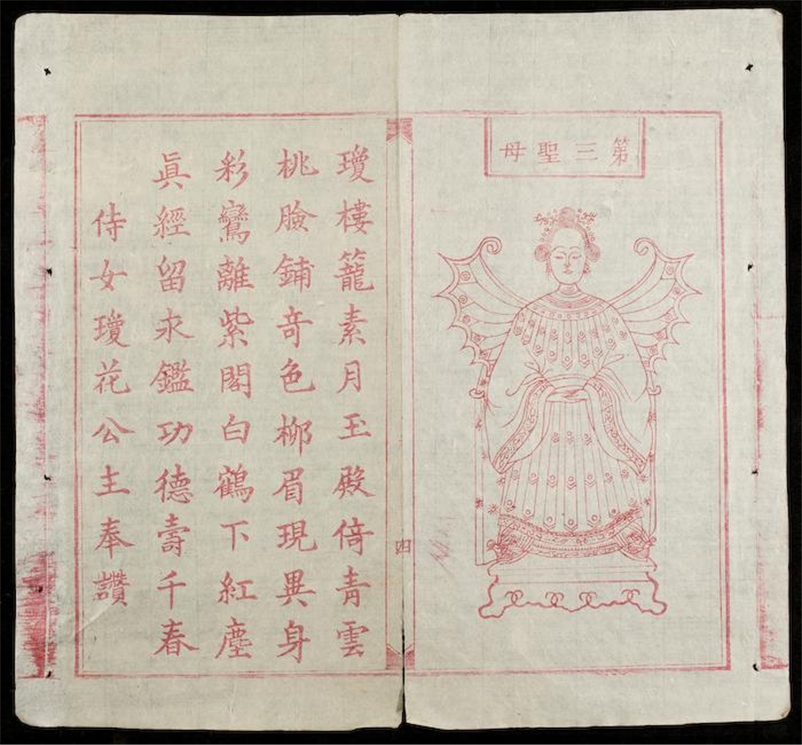 第三聖母
瓊樓籠素月玉殿倚青雲
桃臉鋪竒色柳眉現異身
彩鸞離紫閣白鶴下紅塵
眞經留永鑑功德壽千春
侍女瓊花公主奉讚
四